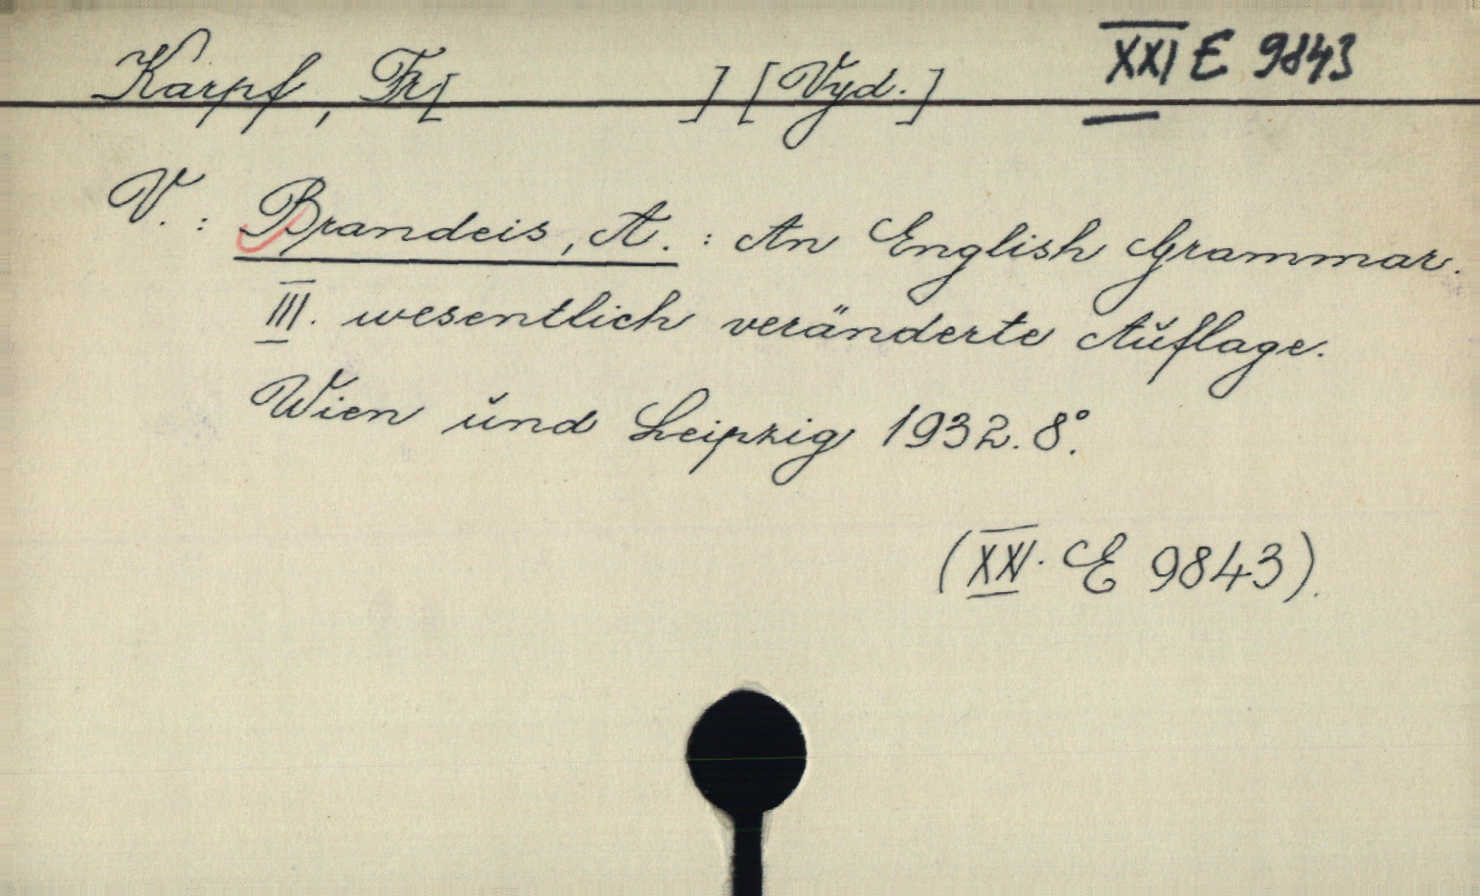 XXI E 9843
Karpf, Fr[ ] [Vyd.]
V.: Brandeis, A.: An English Grammar.
III. wesentlich veränderte Auflage.
Wien und Leipzig 1932. 8°.
(XXI. E 9843).